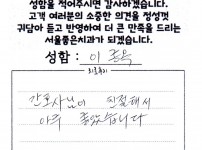 성함을 적어주시면 감사하겠습니다.
고객 여러분의 소중한 의견을 정성껏
귀담아 듣고 반영하여 더 큰 만족을 드리는
서울좋은치과가 되겠습니다.
성함 : 이
간호사님이 친절해서
아주 좋았습니다